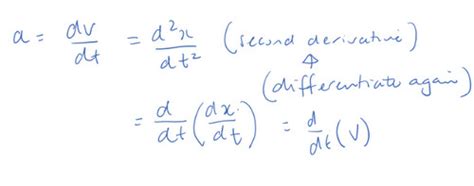 a = dv/dt = d²x/dt² (second derivative)
↑
(differentiate again)
= d/dt (dx/dt) = d/dt (v)